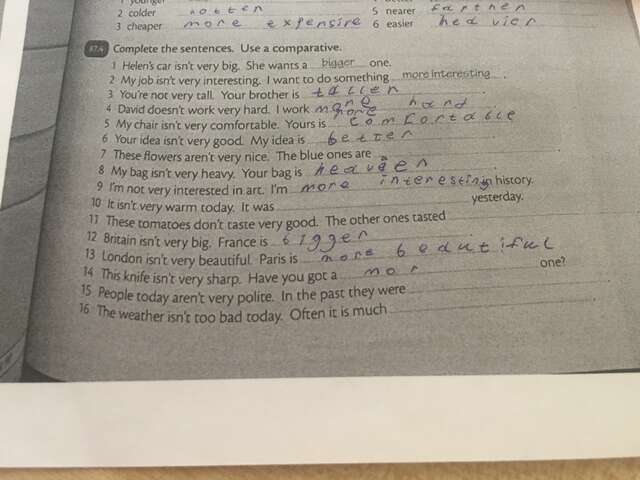 1 younger
2 colder hotter 5 nearer farther
3 cheaper more expensire 6 easier heavier
87.4 Complete the sentences. Use a comparative.
1 Helen's car isn't very big. She wants a bigger one.
2 My job isn't very interesting. I want to do something more interesting.
3 You're not very tall. Your brother is taller
4 David doesn't work very hard. I work more hard
5 My chair isn't very comfortable. Yours is more comfortalle
6 Your idea isn't very good. My idea is better
7 These flowers aren't very nice. The blue ones are
8 My bag isn't very heavy. Your bag is heavier
9 I'm not very interested in art. I'm more interesting in history.
10 It isn't very warm today. It was yesterday.
11 These tomatoes don't taste very good. The other ones tasted
12 Britain isn't very big. France is bigger
13 London isn't very beautiful. Paris is more beautiful
14 This knife isn't very sharp. Have you got a mor one?
15 People today aren't very polite. In the past they were
16 The weather isn't too bad today. Often it is much